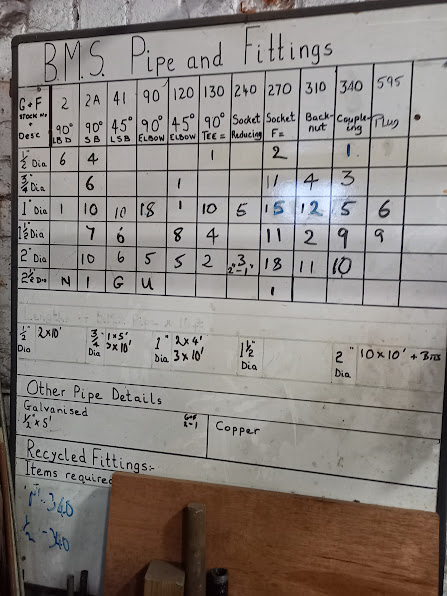 B.M.S. Pipe and Fittings
G+F STOCK No + Desc 2 90° LBD 2A 90° SB 41 45° LSB 90 90° ELBOW 120 45° ELBOW 130 90° TEE= 240 Socket Reducing 270 Socket F= 310 Back-nut 340 Coupleing 595 Plug
1/2" Dia 6 4 1 2 1
3/4" Dia 6 1 11 4 3
1" Dia 1 10 10 18 1 10 5 15 12 5 6
1 1/2" Dia 7 6 8 4 11 2 9 9
2" Dia 10 6 5 5 2 3 2"-1" 18 11 10
2 1/2" Dia N I G U 1
1/2" Dia 2x10' 3/4" Dia 1x5' 3x10' 1" Dia 2x4' 3x10' 1 1/2" Dia 2" Dia 10x10' +
Other Pipe Details
Galvanised
1/2" x 5'
Copper
Recycled Fittings:-
Items required
1" - 340
1/2" - 340